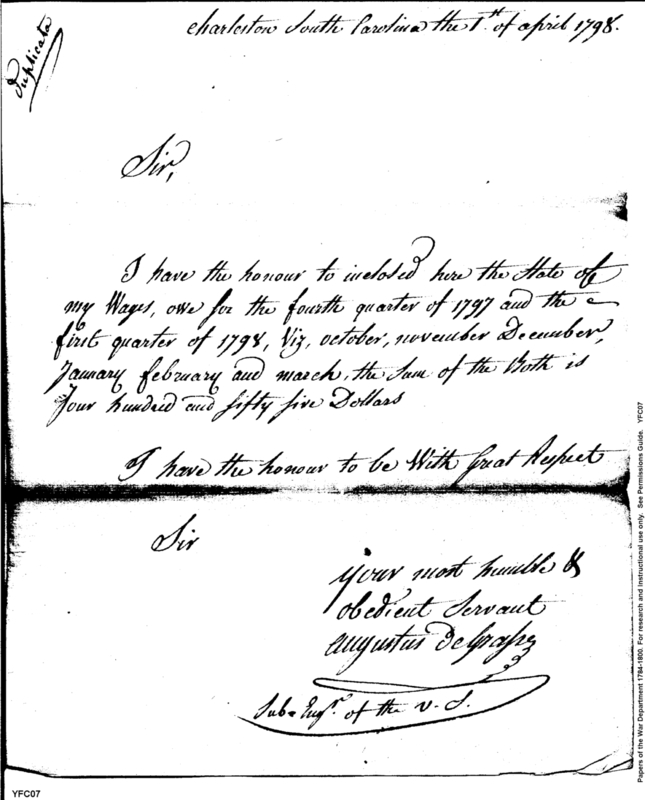 Duplicata
Charleston South Carolina the 1st. of april 1798.
Sir,
I have the honour to inclosed here the State of
my Wages, owe for the fourth quarter of 1797 and the
first quarter of 1798, Viz, october, november December,
January february and march, the Sum of the Both is
Four hundred and fifty five Dollars
I have the honour to be With Great Respect
Sir
your most humble &
obedient Servant
augustus DeGrasse
Sub-Engr. of the U. S.
Papers of the War Department 1784-1800. For research and instructional use only. See Permissions Guide. YFC07
YFC07